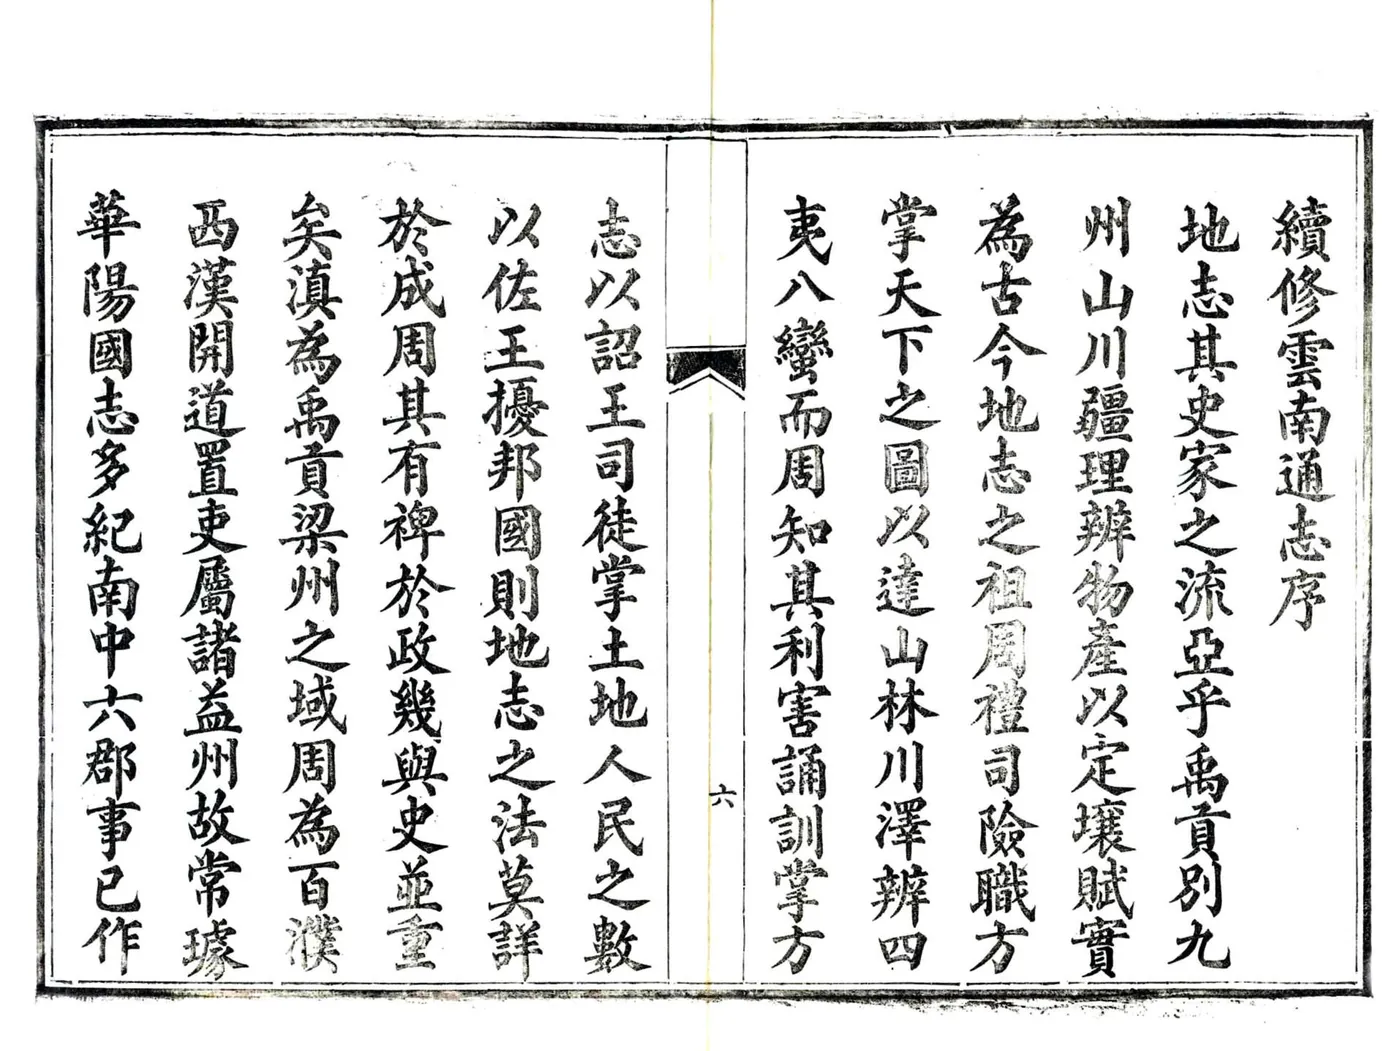 續修雲南通志序
地志其史家之流亞乎禹貢別九
州山川疆理辨物產以定壤賦實
為古今地志之祖周禮司險職方
掌天下之圖以達山林川澤辨四
夷八蠻而周知其利害誦訓掌方
六
志以詔王司徒掌土地人民之數
以佐王擾邦國則地志之法莫詳
於成周其有裨於政幾與史並重
矣滇為禹貢梁州之域周為百濮
西漢開道置吏屬諸益州故常璩
華陽國志多紀南中六郡事已作